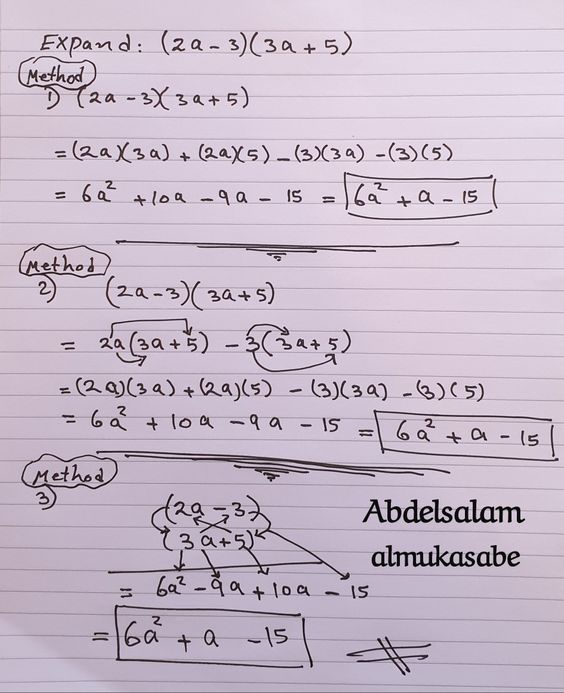 Expand: (2a - 3)(3a + 5)
Method
1) (2a - 3)(3a + 5)
= (2a)(3a) + (2a)(5) - (3)(3a) - (3)(5)
= 6a² + 10a - 9a - 15 = 6a² + a - 15
Method
2) (2a - 3)(3a + 5)
= 2a(3a + 5) - 3(3a + 5)
= (2a)(3a) + (2a)(5) - (3)(3a) - (3)(5)
= 6a² + 10a - 9a - 15 = 6a² + a - 15
Method
3)
(2a - 3)
(3a + 5)
= 6a² - 9a + 10a - 15
= 6a² + a - 15
Abdelsalam
almukasabe